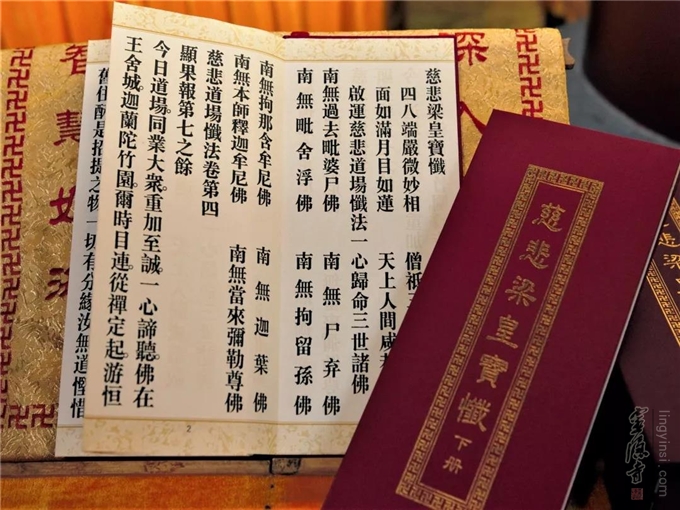 慈悲梁皇寶懺
四八端嚴微妙相　僧祇
面如滿月目如蓮　天上人間咸
啟運慈悲道場懺法一心歸命三世諸佛
南無過去毗婆尸佛　南無尸弃佛
南無毗舍浮佛　南無拘留孫佛
南無拘那含牟尼佛　南無迦葉佛
南無本師釋迦牟尼佛　南無當來彌勒尊佛
慈悲道場懺法卷第四
顯果報第七之餘
今日道場。同業大衆。重加至誠。一心諦聽。佛在
王舍城。迦蘭陀竹園。爾時目連。從禪定起。游恒
2
舊住酬是招提之物一切有分緣汝無道慳惜
深入
智慧如
慈悲梁皇寶懺
下册
慈悲梁皇
靈隱寺
lingyinsi.com